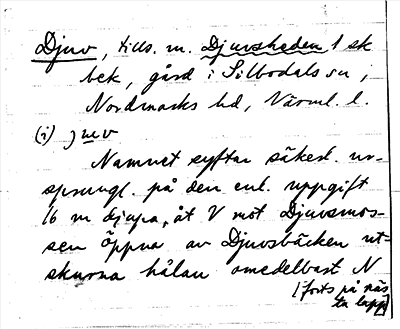 Djuv, tills. m. Djuvsheden 1 sk
bek, gård i Silbodals sn,
Nordmarks hd, Värml. l.
(i) juv
Namnet syftar säkerl. ur-
sprungl. på den enl. uppgift
16 m djupa, åt V mot Djuvsmos-
sen öppna av Djuvsbäcken ut-
skurna hålan omedelbart N
[forts på näs
ta lapp]